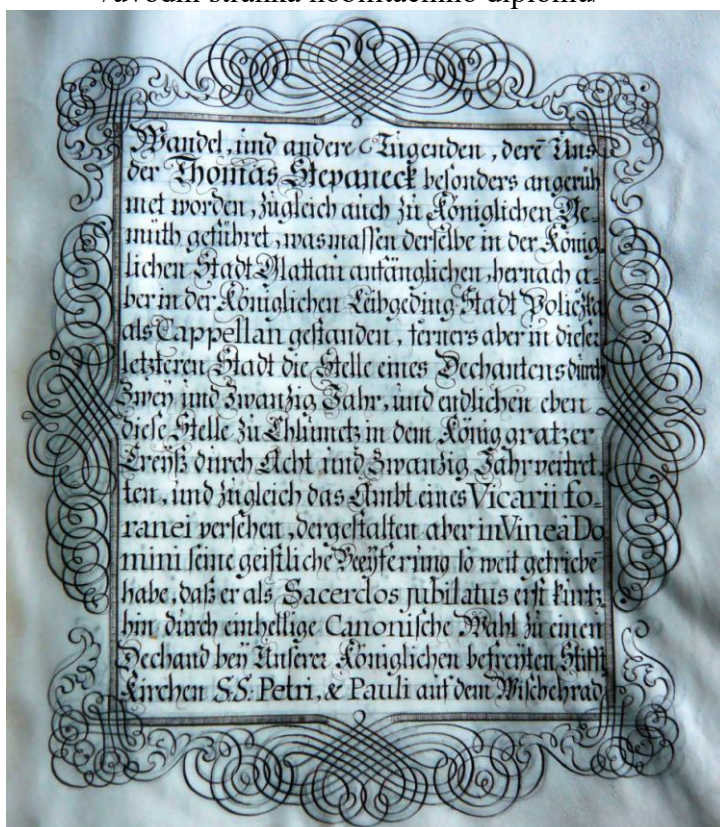 úvodní stránka nobilitačního diplomu
Wandel, und andere Tugenden, derē Uns
der Thomas Stepaneck besonders angerüh
met worden, zugleich auch zu Königlichen Ge-
müth geführet, wasmassen derselbe in der König-
lichen Stadt Klattau anfänglichen, hernach a-
ber in der Königlichen Leibgeding-Stadt Policzka
als Cappellan gestanden, ferners aber in dieser
letzteren Stadt die Stelle eines Dechantens durch
Zwey und Zwanzig Jahr, und endlichen eben
diese Stelle zu Chlumetz in dem Königgratzer
Creyß durch Acht und Zwanzig Jahr vertret-
ten, und zugleich das Ambt eines Vicarii fo-
ranei versehen, dergestalten aber in Vineâ Do
mini seine geistliche Beeyferung so weit getriebē
habe, daß er als Sacerdos jubilatus erst kurtz-
hin, durch einhellige Canonische Wahl zu einen
Dechand bey Unserer Königlichen befreyten Stifft
Kirchen S.S. Petri, & Pauli auf dem Wischehrad